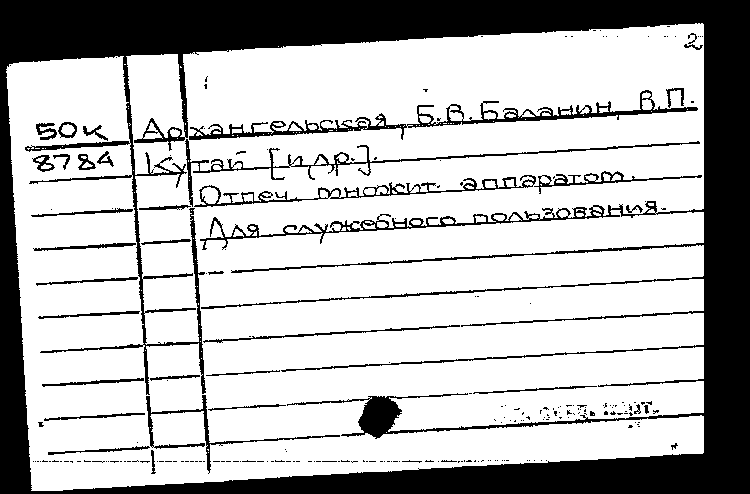 2
50к Архангельская, Б.В. Баланин, В.П.
8784 Кутай [и др.].
Отпеч. множит. аппаратом.
Для служебного пользования.